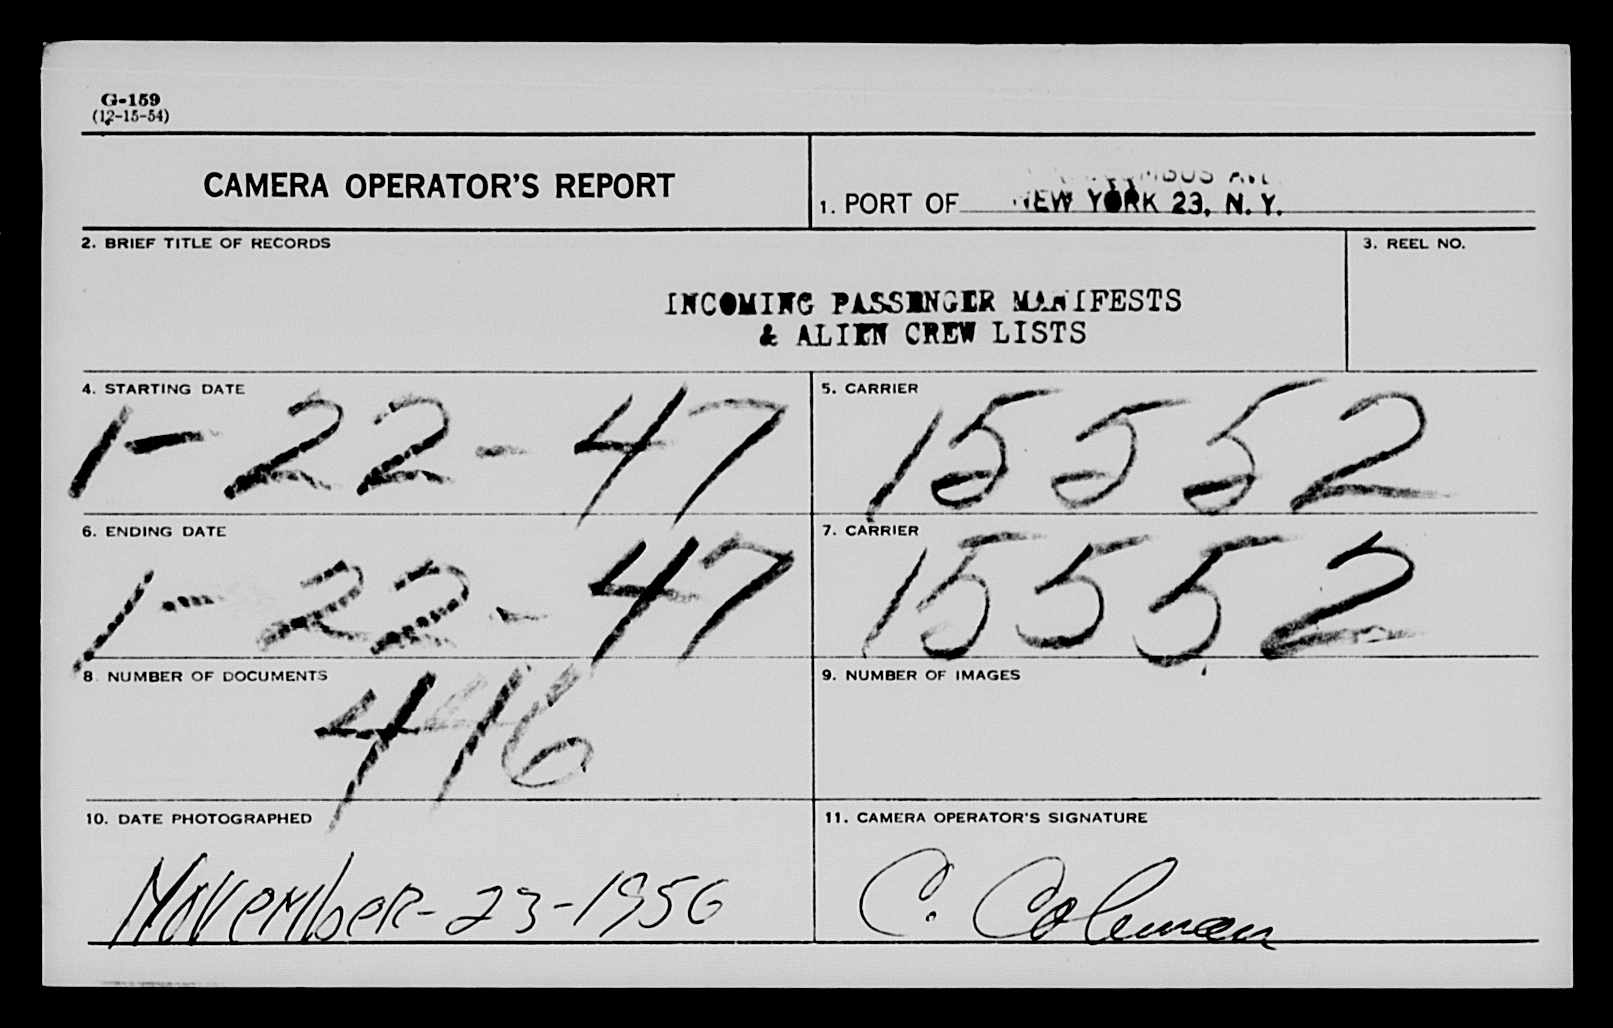 G-159
(12-15-54)
CAMERA OPERATOR'S REPORT
1. PORT OF NEW YORK 23, N. Y.
2. BRIEF TITLE OF RECORDS
3. REEL NO.
INCOMING PASSENGER MANIFESTS
& ALIEN CREW LISTS
4. STARTING DATE
1-22-47
5. CARRIER
15552
6. ENDING DATE
1-22-47
7. CARRIER
15552
8. NUMBER OF DOCUMENTS
446
9. NUMBER OF IMAGES
10. DATE PHOTOGRAPHED
NOVEMBER-23-1956
11. CAMERA OPERATOR'S SIGNATURE
C. Coleman